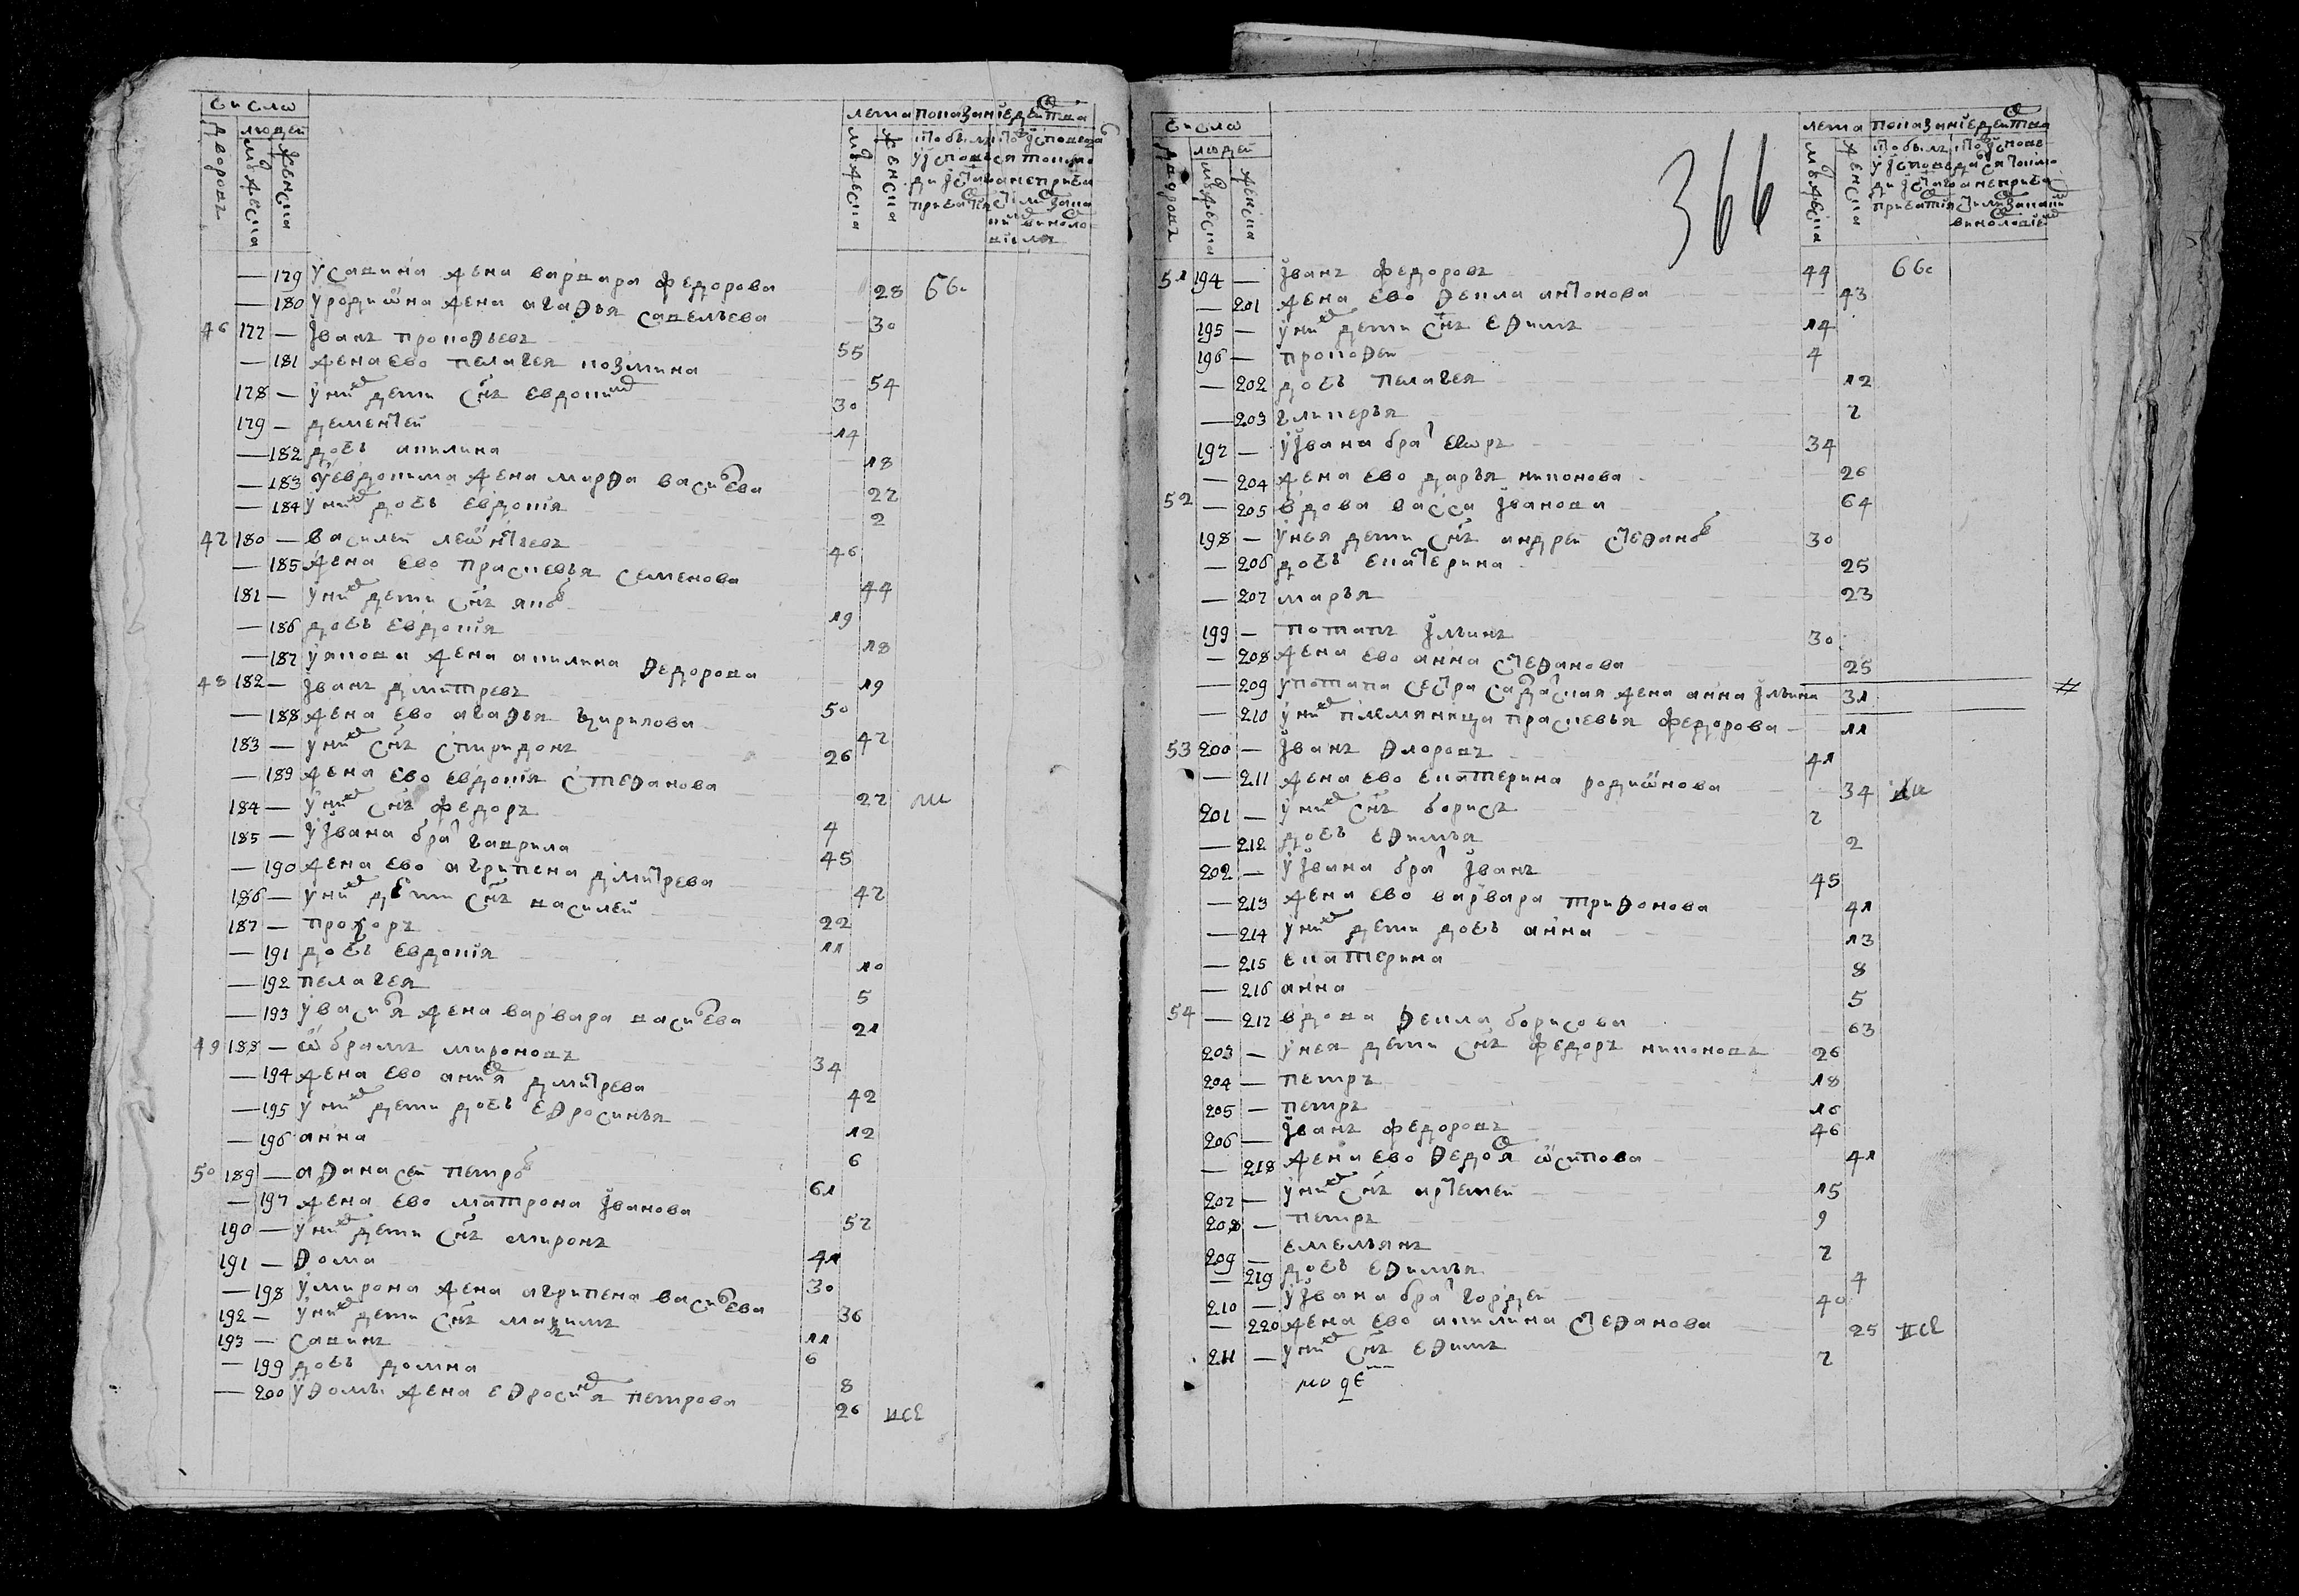 число
дворовъ
людей
мужеска
женска
лета
показание действа
мужеска
женска
— 179 у савина жена варвара федорова — 28 ббс
— 180 у родиѡна жена агафья савельева — 30
46 177 — Іванъ прокофьевъ 55
— 181 жена ево пелагея козмина — 54
178 — у них дети сн҃ъ евдоким 30
179 — дементей — 14
— 182 дочь акилина — 18
— 183 у евдокима жена марфа васильева — 27
— 184 у них дочь евдокія — 2
47 180 — василей леѡнтьевъ 46
— 185 жена ево прасковья семенова — 44
181 — у них дети сн҃ъ яков 19
— 186 дочь евдокія — 18
— 187 у якова жена акилина федорова — 19
48 182 — Іванъ дмитревъ 50
— 188 жена ево агафья кирилова — 47
183 — у них сн҃ъ спиридонъ 26
— 189 жена ево евдокія стефанова — 27
184 — у них сн҃ъ федоръ 4
185 — у Івана брат гаврила 45
— 190 жена ево агрипена дмитрева — 47
186 — у них дети сн҃ъ василей 22
187 — прохоръ 11
— 191 дочь евдокія — 10
— 192 пелагея — 5
— 193 у василья жена варвара васильева — 21
49 188 — ѡбрамъ мироновъ 34
— 194 жена ево анися дмитрева — 42
— 195 у них дети дочь ефросинья — 12
— 196 анна — 6
50 189 — афанасей петров 61
— 197 жена ево матрона Іванова — 57
190 — у них дети сн҃ъ миронъ 41
191 — фома 30
— 198 у мирона жена агрипена васильева — 36
192 — у них дети сн҃ъ макимъ 11
193 — савинъ 6
— 199 дочь домна — 8
— 200 у фомы жена ефросинья петрова — 26 все
366
число
дворовъ
людей
мужеска
женска
лета
показание действа
мужеска
женска
51 194 — Іванъ федоровъ 44 ббс
— 201 жена ево фекла антонова — 43
195 — у них дети сн҃ъ ефимъ 14
196 — прокофей 4
— 202 дочь пелагея 12
— 203 гликерья 7
197 — у Івана брат егоръ 34
— 204 жена ево дарья никонова 26
52 — 205 вдова васса Іванова 64
198 — у нея дети сн҃ъ андрей стефанов 30
— 206 дочь екатерина 25
— 207 марья 23
199 — потапъ Ільинъ 30
— 208 жена ево анна стефанова 25
— 209 у потапа сестра салдатская жена анна Ільина 31 #
— 210 у них племянница прасковья федорова — 11
53 200 — Іванъ флоровъ 41
— 211 жена ево екатерина родиѡнова — 34
201 — у них сн҃ъ борисъ 7
— 212 дочь ефимья 2
202 — у Івана брат Іванъ 45
— 213 жена ево варвара трифонова 41
— 214 у них дети дочь анна 13
— 215 екатерина 8
— 216 анна 5
54 — 217 вдова фекла борисова 63
203 — у нея дети сн҃ъ федоръ никоновъ 26
204 — петръ 18
205 — петръ 16
206 — Іванъ федоровъ 46
— 218 жена ево федося ѡсипова 41
207 — у них сн҃ъ артемей 15
208 — петръ 9
209 — емельянъ 7
— 219 дочь ефимья 4
210 — у Івана брат гордей 40
— 220 жена ево акилина стефанова 25 все
211 — у них сн҃ъ ефимъ 7